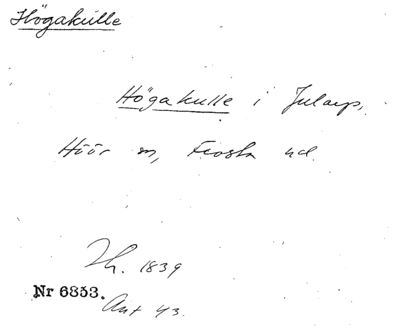 Högakulle
Högakulle i Jularp,
Höör sn, Frosta hd.
Th. 1839
Nr 6353.
Ant 43.